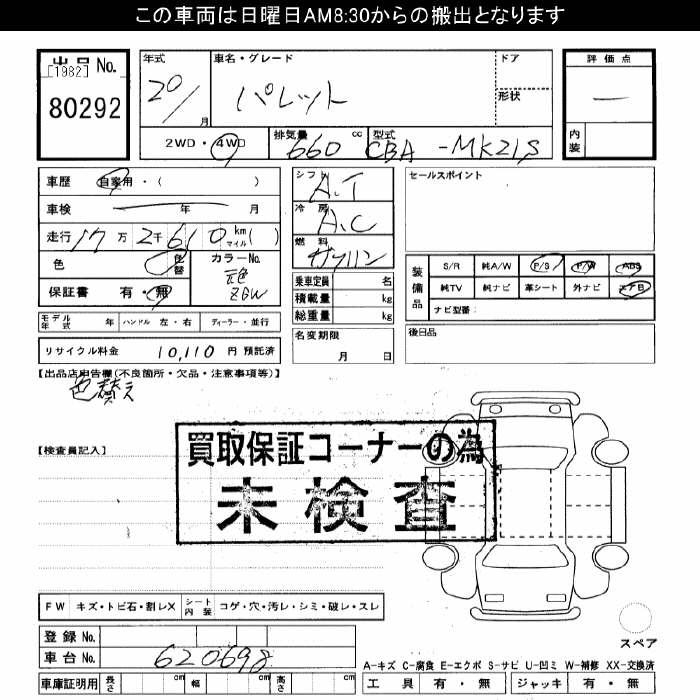 この車両は日曜日AM8:30からの搬出となります
出品No.
[1982]
80292
年式 20/ 月
車名・グレード パレット
ドア
形状
評価点 —
内装
2WD・4WD 排気量 660 cc 型式 CBA-MK21S
車歴 自家用・( )
車検 年 月
走行 17万 2千 610 km マイル ( )
色 色替 カラーNo. 元色 ZGW
保証書 有・無
シフト A.T
冷房 A.C
燃料 ガソリン
乗車定員 名
積載量 kg
総重量 kg
セールスポイント
装備品 S/R 純A/W P/S P/W ABS
純TV 純ナビ 革シート 外ナビ エアB
ナビ型番:
モデル年式 年 ハンドル 左・右 ディーラー・並行
名変期限 月 日
後日品
リサイクル料金 10,110 円 預託済
【出品店申告欄(不良箇所・欠品・注意事項等)】
色替え
買取保証コーナーの為
未検査
【検査員記入】
FW キズ・トビ石・割レX シート内装 コゲ・穴・汚レ・シミ・破レ・スレ
登録No.
車台No. 620698
車庫証明用 長さ cm 幅 cm 高さ cm
スペア
A-キズ C-腐食 E-エクボ S-サビ U-凹ミ W-補修 XX-交換済
工具 有・無 ジャッキ 有・無